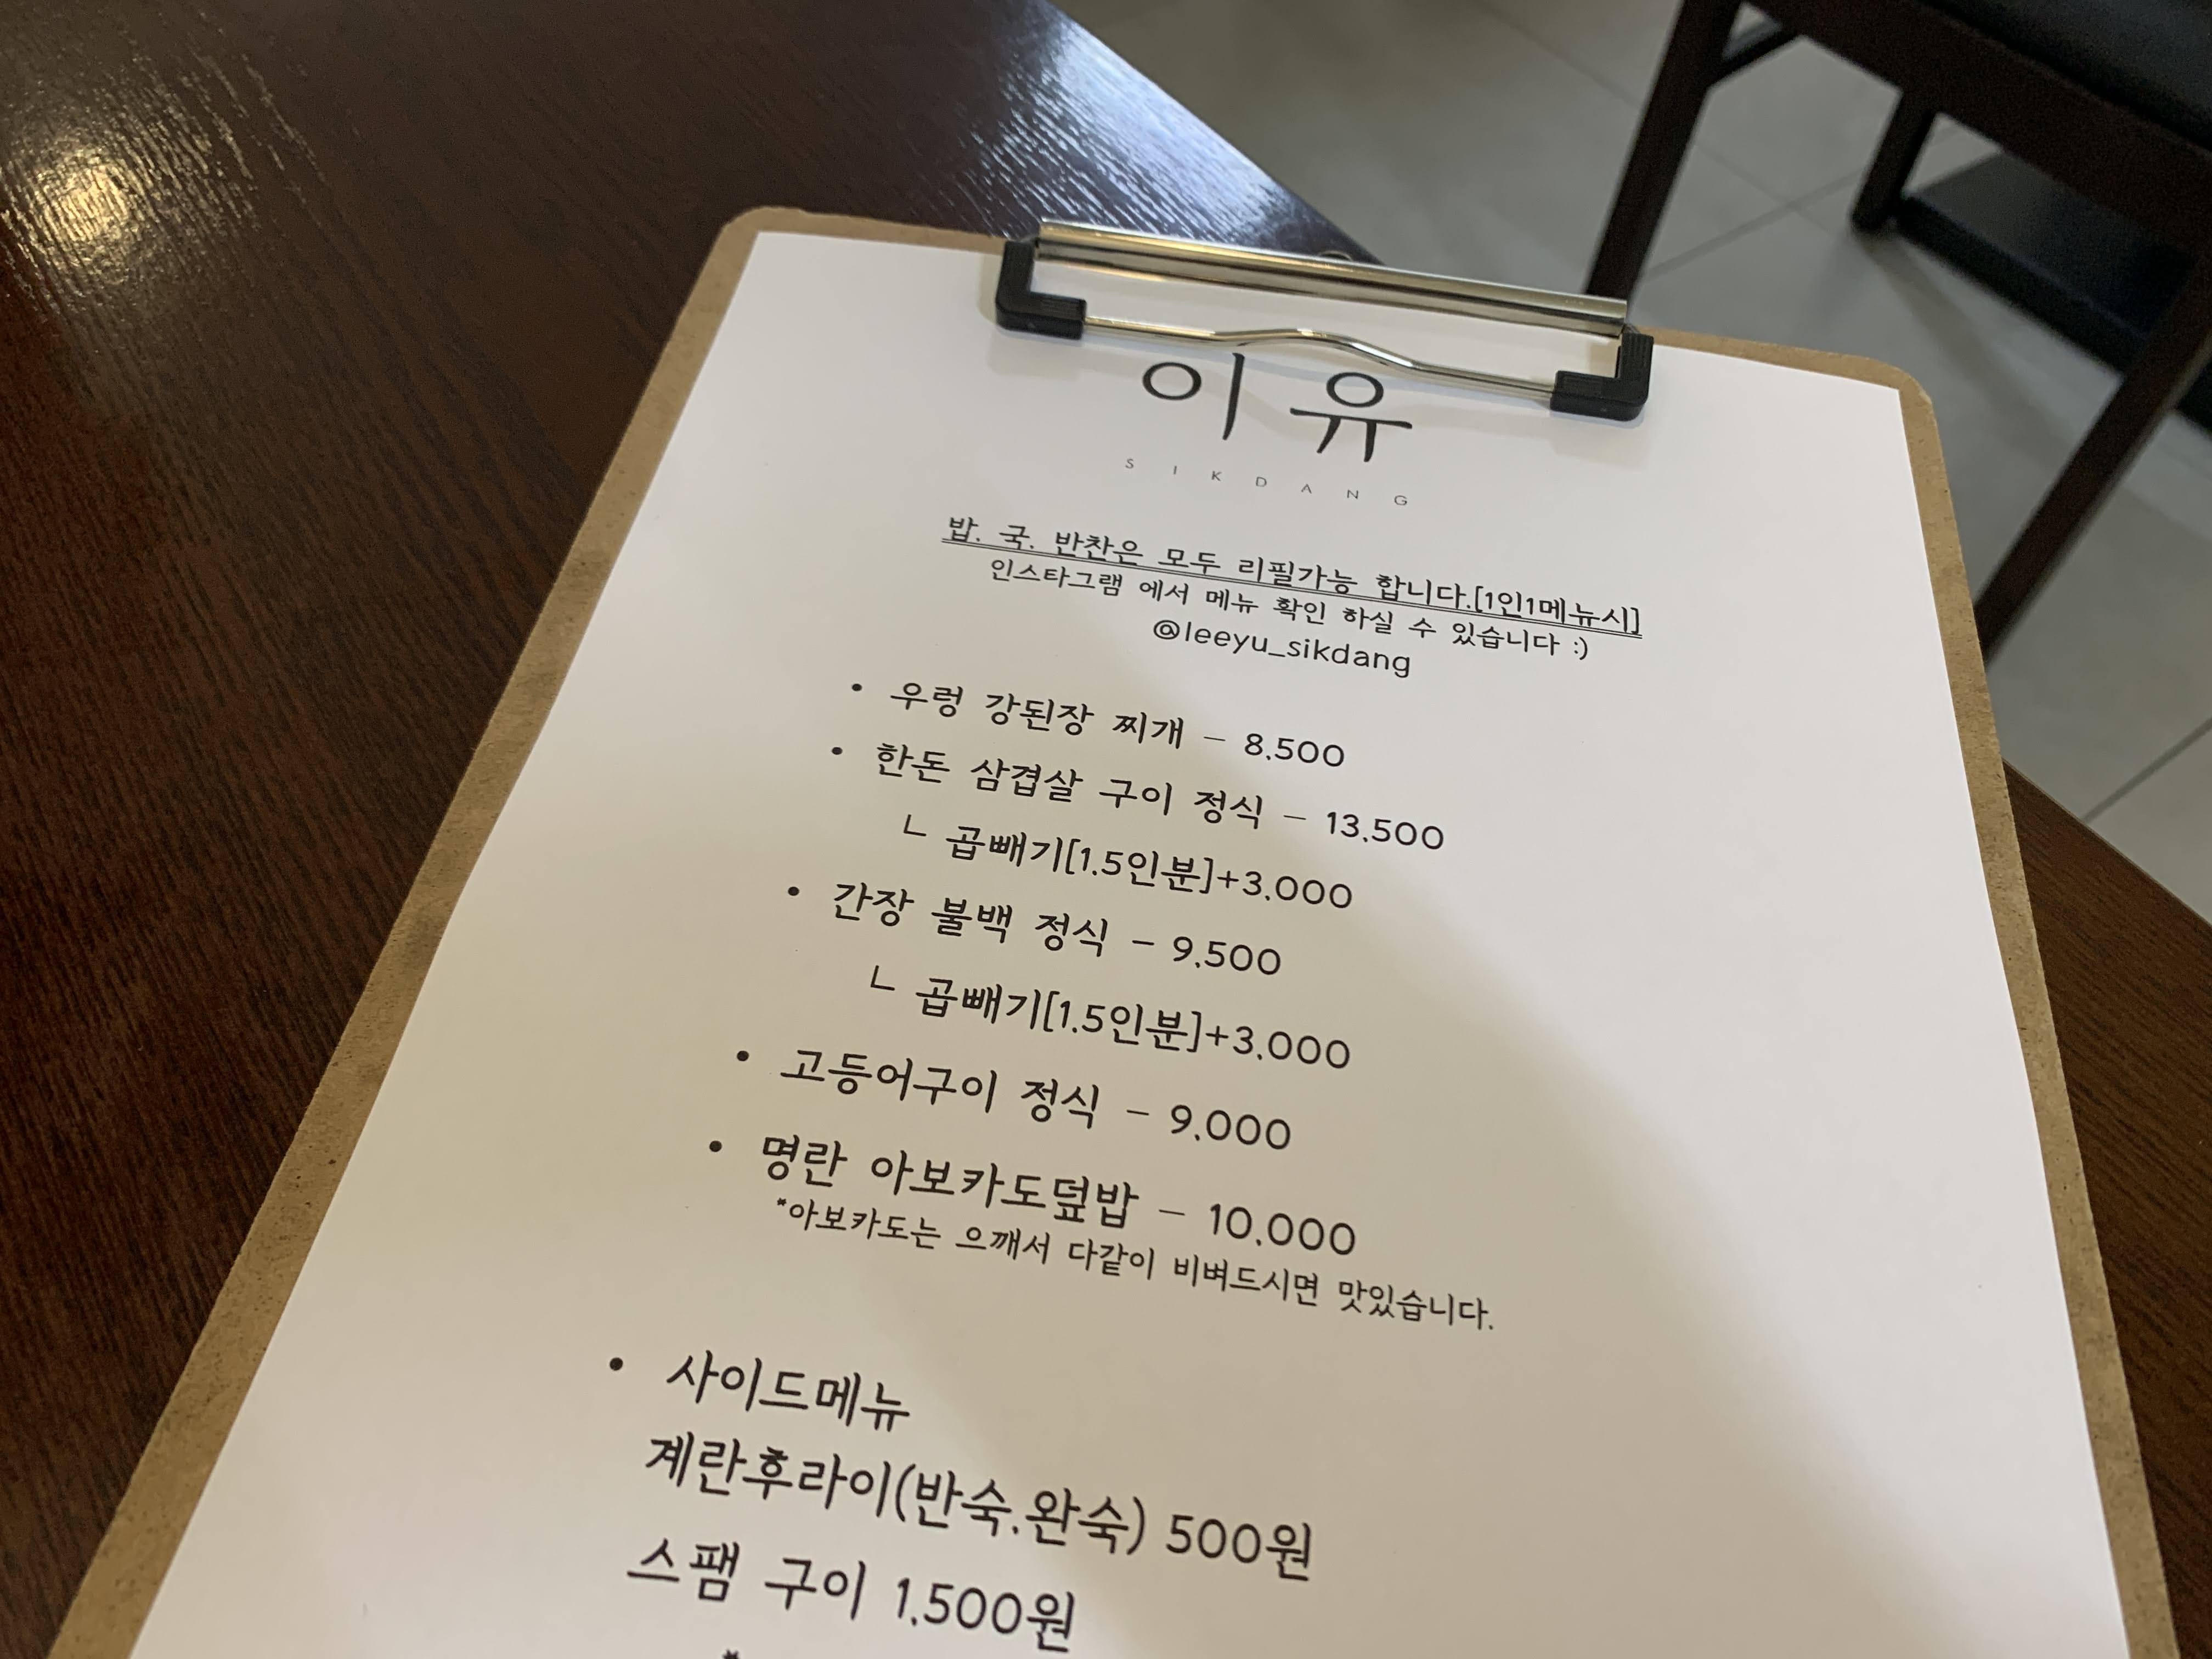 이유
SIKDANG
밥. 국. 반찬은 모두 리필가능 합니다.[1인1메뉴시]
인스타그램 에서 메뉴 확인 하실 수 있습니다 :)
@leeyu_sikdang
• 우렁 강된장 찌개 – 8,500
• 한돈 삼겹살 구이 정식 – 13,500
ㄴ 곱빼기[1.5인분]+3,000
• 간장 불백 정식 – 9,500
ㄴ 곱빼기[1.5인분]+3,000
• 고등어구이 정식 – 9,000
• 명란 아보카도덮밥 – 10,000
*아보카도는 으깨서 다같이 비벼드시면 맛있습니다.
• 사이드메뉴
계란후라이(반숙.완숙) 500원
스팸 구이 1,500원
*